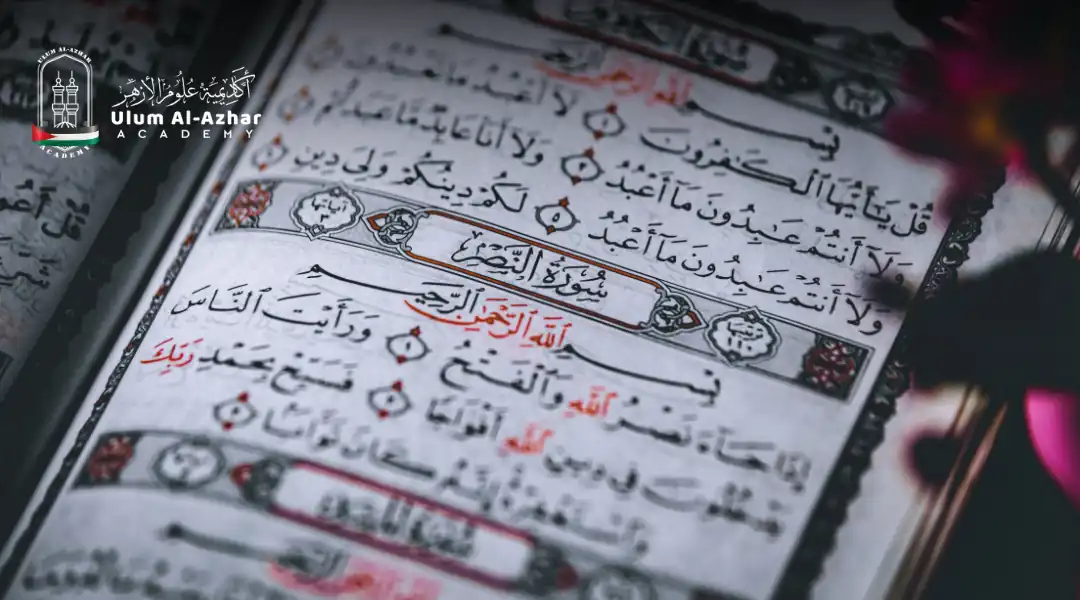 ULUM AL-AZHAR
ACADEMY
أكاديمية علوم الأزهر
Ulum Al-Azhar
ACADEMY
بِسْمِ ٱللَّهِ ٱلرَّحْمَٰنِ ٱلرَّحِيمِ
قُلْ يَٰٓأَيُّهَا ٱلْكَٰفِرُونَ ١ لَآ أَعْبُدُ مَا تَعْبُدُونَ
وَلَآ أَنتُمْ عَٰبِدُونَ مَآ أَعْبُدُ ٣ وَلَآ أَنَا۠ عَابِدٌ مَّا عَبَدتُّمْ
وَلَآ أَنتُمْ عَٰبِدُونَ مَآ أَعْبُدُ ٥ لَكُمْ دِينُكُمْ وَلِىَ دِينِ ٦
آياتها ٣ سُورَةُ النَّصْرِ ترتيبها ١١٠
بِسْمِ ٱللَّهِ ٱلرَّحْمَٰنِ ٱلرَّحِيمِ
إِذَا جَآءَ نَصْرُ ٱللَّهِ وَٱلْفَتْحُ ١ وَرَأَيْتَ ٱلنَّاسَ
يَدْخُلُونَ فِى دِينِ ٱللَّهِ أَفْوَاجًا ٢ فَسَبِّحْ بِحَمْدِ رَبِّكَ
وَٱسْتَغْفِرْهُ إِنَّهُۥ كَانَ تَوَّابًۢا ٣